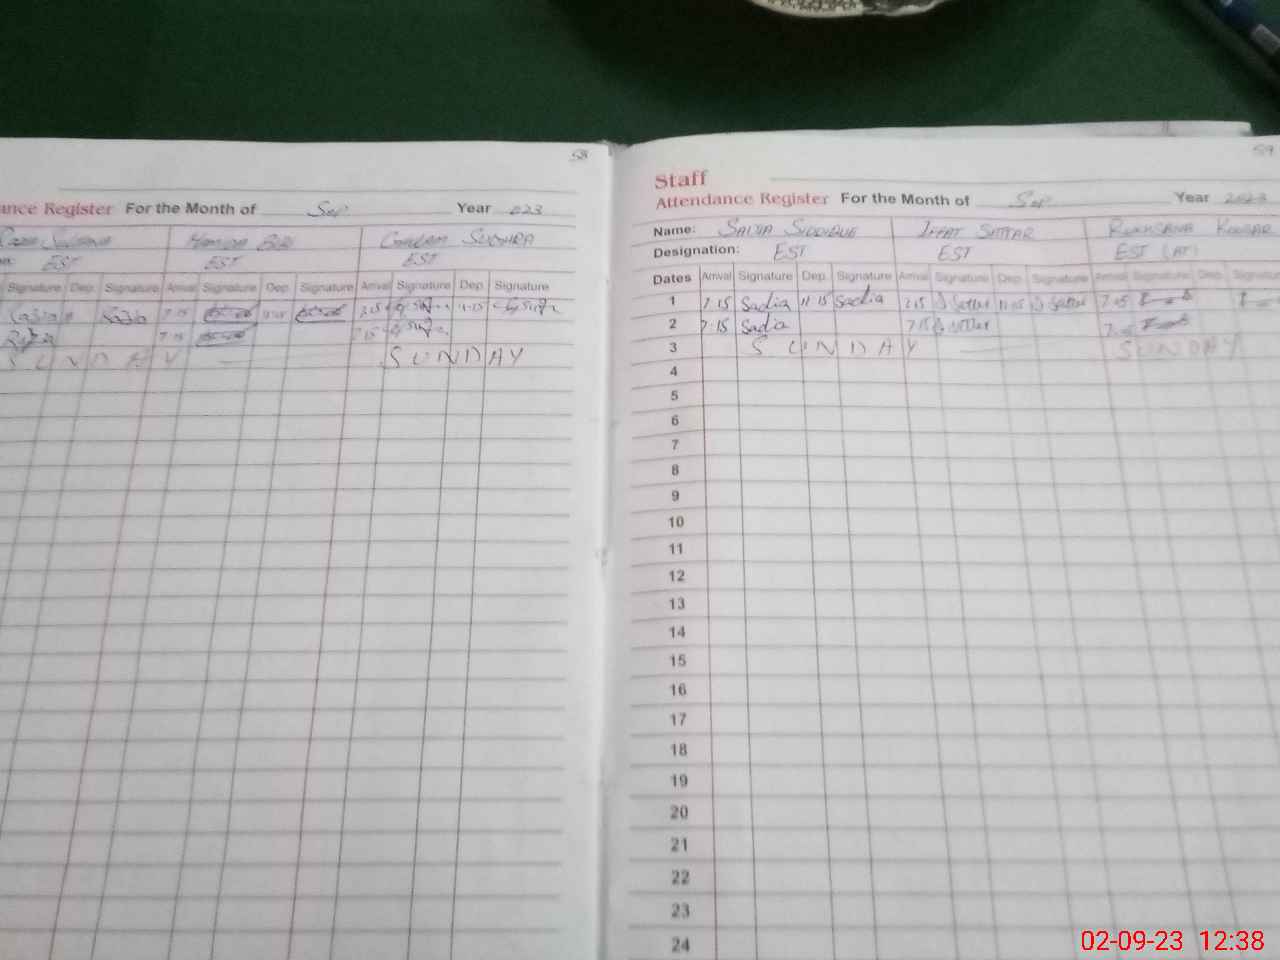 58
ance Register For the Month of Sep Year 2023
EST EST EST
Signature Dep. Signature Arrival Signature Dep. Signature Arrival Signature Dep. Signature
7.15 7.15 11.15
7.15 7.15
SUNDAY SUNDAY
59
Staff
Attendance Register For the Month of Sep Year 2023
Name: SADIA SIDDIQUE IFFAT SATTAR RUKHSANA KOUSAR
Designation: EST EST EST (AT)
Dates Arrival Signature Dep. Signature Arrival Signature Dep. Signature Arrival Signature Dep. Signatu
1 7.15 Sadia 11.15 Sadia 7.15 Sattar 11.15 Sattar 7.15
2 7.15 Sadia 7.15 Sattar
3 SUNDAY SUNDAY
4
5
6
7
8
9
10
11
12
13
14
15
16
17
18
19
20
21
22
23
24
02-09-23 12:38